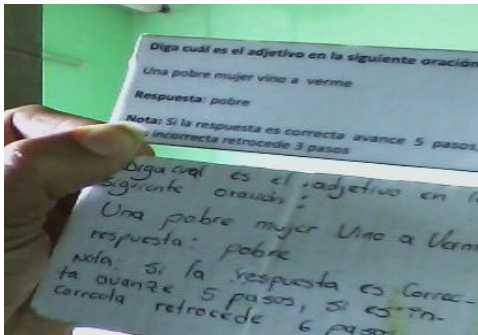 Diga cuál es el adjetivo en la siguiente oración
Una pobre mujer vino a verme
Respuesta: pobre
Nota: Si la respuesta es correcta avance 5 pasos,
incorrecta retrocede 3 pasos
Diga cual es el adjetivo en
Siguiente oración:
Una pobre mujer vino a Verm
respuesta: pobre
Nota: si la respuesta es Correc-
ta avanze 5 pasos, si es in-
correcta retrocede 6 pasos